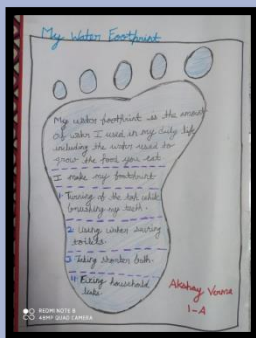 My Water Footprint
My water footprint is the amount
of water I used in my daily life
including the water used to
grow the food you eat
I make my footprint
1 Turning of the tap while
brushing my teeth.
2 Using water saving
toilets.
3 Taking shorter bath.
4 Fixing household
leaks.
Akshay Verma
1-A
REDMI NOTE 8
48MP QUAD CAMERA